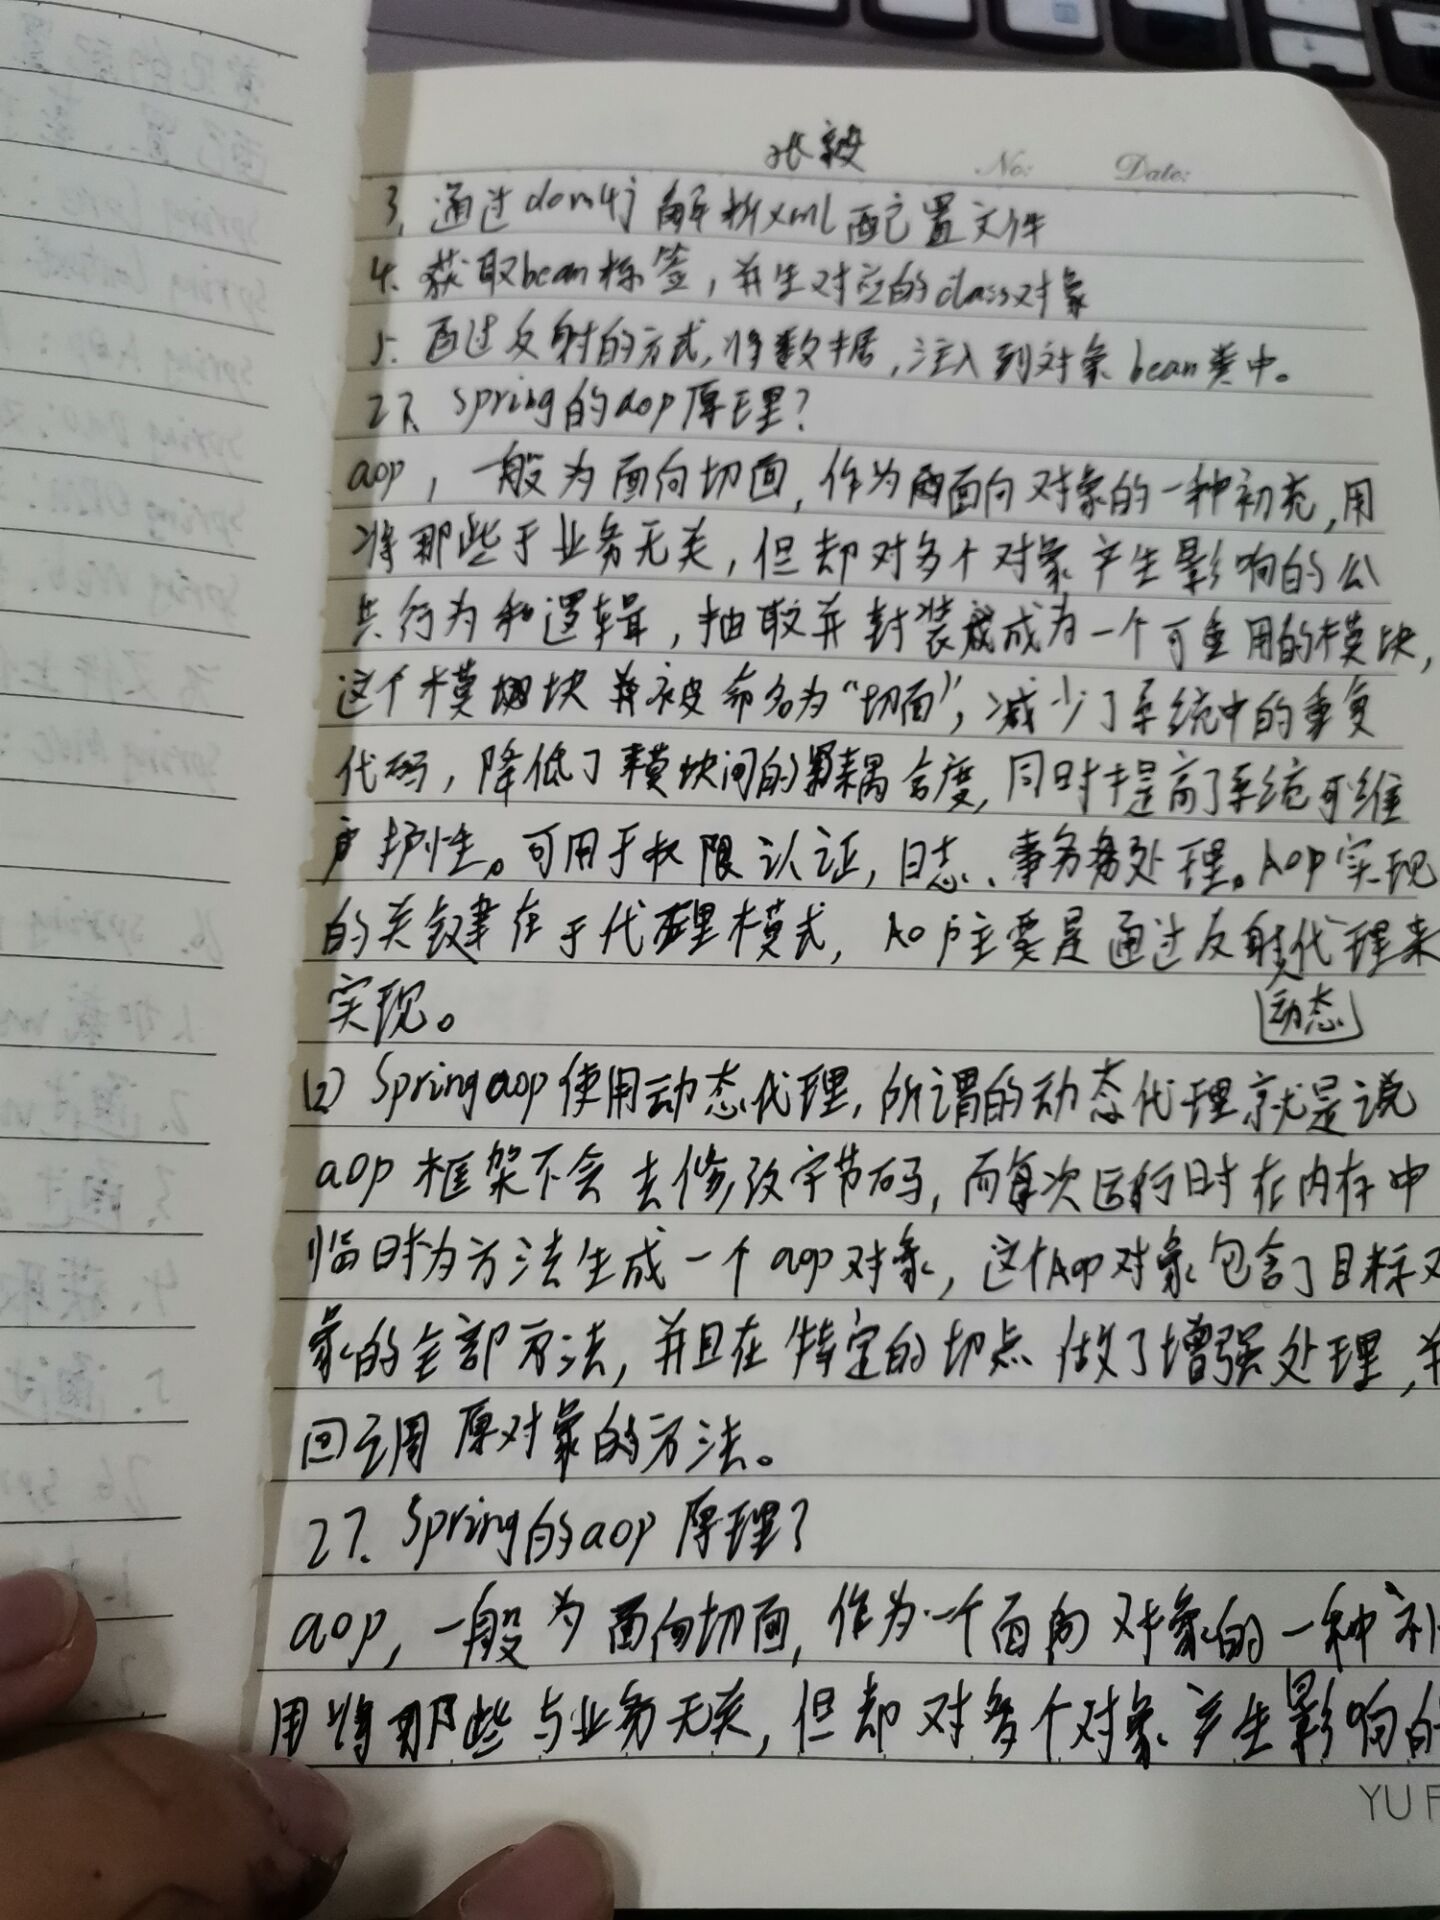 No: Date:
3、通过dom4j解析xml配置文件
4、获取bean标签，并生对应的class对象
5、通过反射的方式，将数据，注入到对象bean类中。
27、spring的aop原理？
aop，一般为面向切面，作为面向对象的一种初充，用
将那些于业务无关，但却对多个对象产生影响的公
共行为和逻辑，抽取并封装成为一个可重用的模块，
这个模块并被命名为“切面”，减少了系统中的重复
代码，降低了模块间的耦合度，同时提高了系统可维
护性。可用于权限认证，日志、事务处理。AOP实现
的关键在于代理模式，AOP主要是通过反射代理来
实现。
动态
(2) Spring aop使用动态代理，所谓的动态代理就是说
aop框架不会去修改字节码，而每次运行时在内存中
临时为方法生成一个aop对象，这个AOP对象包含了目标对
象的全部方法，并且在特定的切点做了增强处理，并
回调原对象的方法。
27. Spring的aop原理？
aop，一般为面向切面，作为一个面向对象的一种补
用将那些与业务无关，但却对多个对象产生影响的
YU